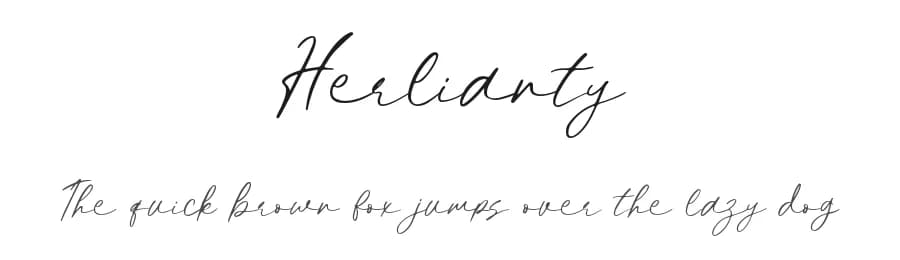 Herlianty
The quick brown fox jumps over the lazy dog